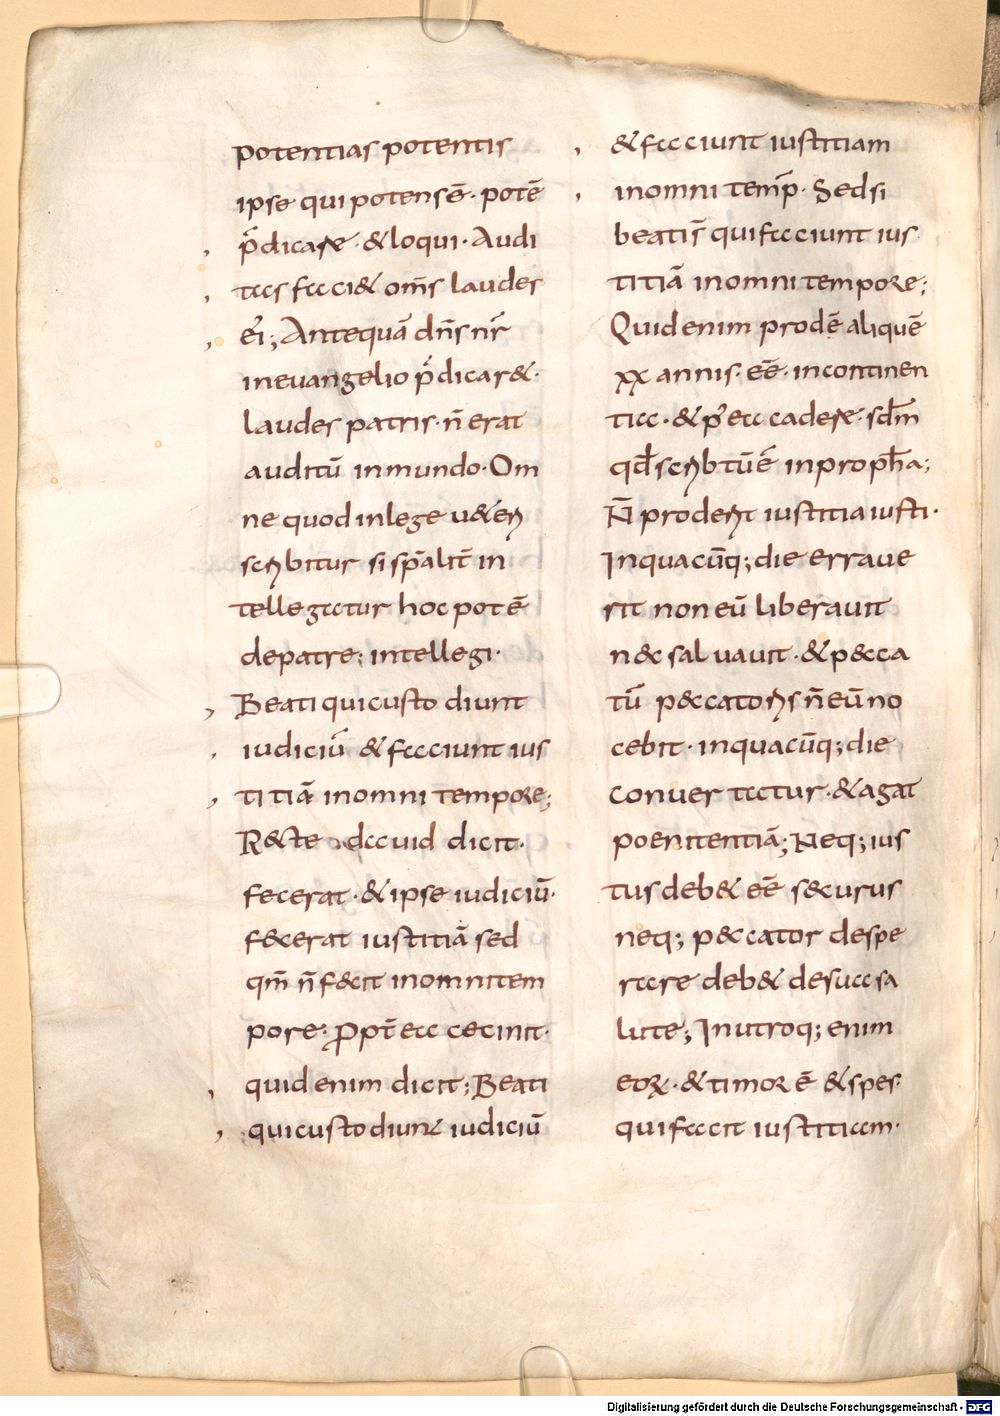 potentias potentis
ipse qui potens ē· potē
p̄dicare· & loqui· Audi
tas faci& om̄s laudes
ei; Antequā dn̄s nr̄
in evangelio p̄dicar&·
laudes patris· n̄ erat
auditū in mundo· Om
ne quod in lege u&eri
scribitur si sp̄alit̄ in
tellegatur hoc pot ē
de patre; intellegi·
Beati qui custodiunt
iudiciū & faciunt ius
titiā in omni tempore;
R&te dauid dicit·
fecerat· & ipse iudiciū·
fecerat iustitiā sed
qm̄ n̄ fecit in omni tem
pore· Propt̄ ea cecinit·
quid enim dicit; Beati
qui custodiunt iudiciū
& faciunt iustitiam
in omni temp̄· Sed si
beati s̄ qui faciunt ius
titiā in omni tempore;
Quid enim prodē aliquē
xx annis· eē· in continen
tia· & p̄ ea cadere· sc̄dm
qd̄ scribtū ē in proph̄a;
N̄ proderit iustitia iusti·
In quacūq; die errave
rit non eū liberavit
nec salvavit· & pecca
tū peccatoris n̄ eū no
cebit· in quacūq; die
convertatur· & agat
poenitentiā; Neq; ius
tus deb& eē securus
neq; peccator despe
rare deb& de sua sa
lute; In utroq; enim
eorum· & timor ē & spes·
qui facit iustitiam·
Digitalisierung gefördert durch die Deutsche Forschungsgemeinschaft - DFG